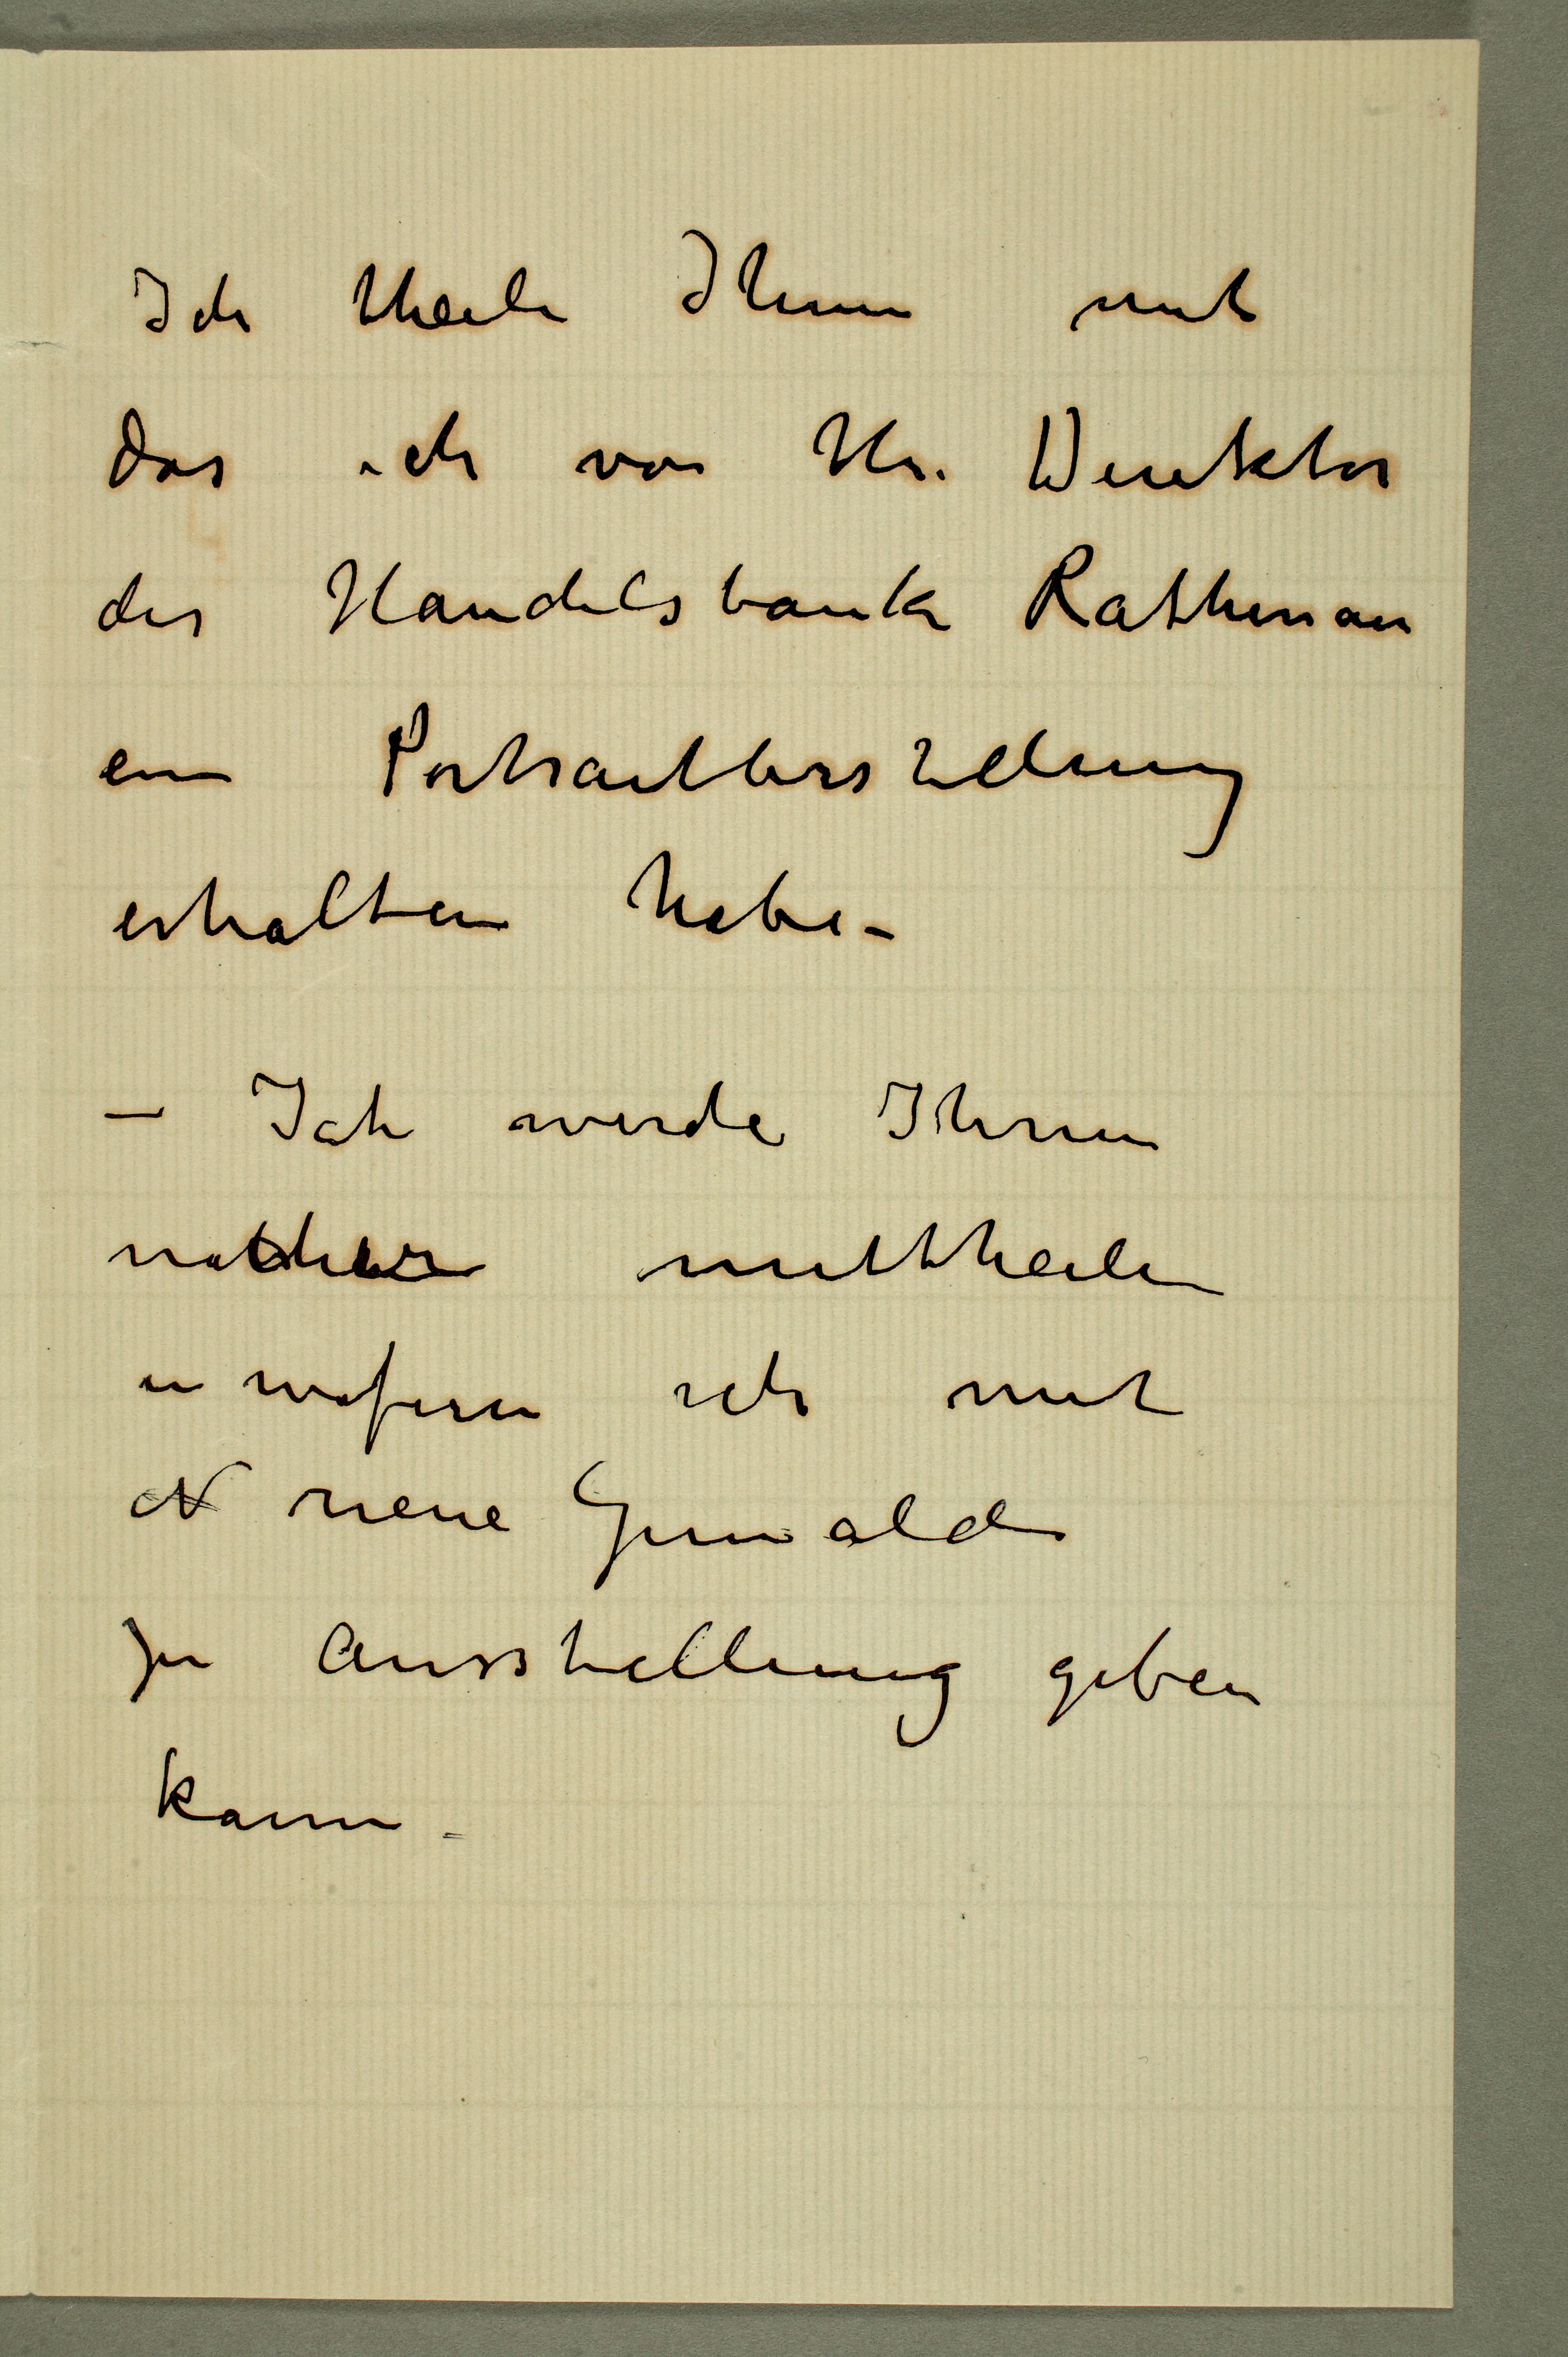 Ich theile Ihnen mit
das ich von Hr. Direktor
der Handelsbank Rathenau
ein Portraitbestellung
erhalten habe –
– Ich werde Ihnen
mittheilen
in wiefern ich mit
neue Gemälde
zu Ausstellung geben
kann –